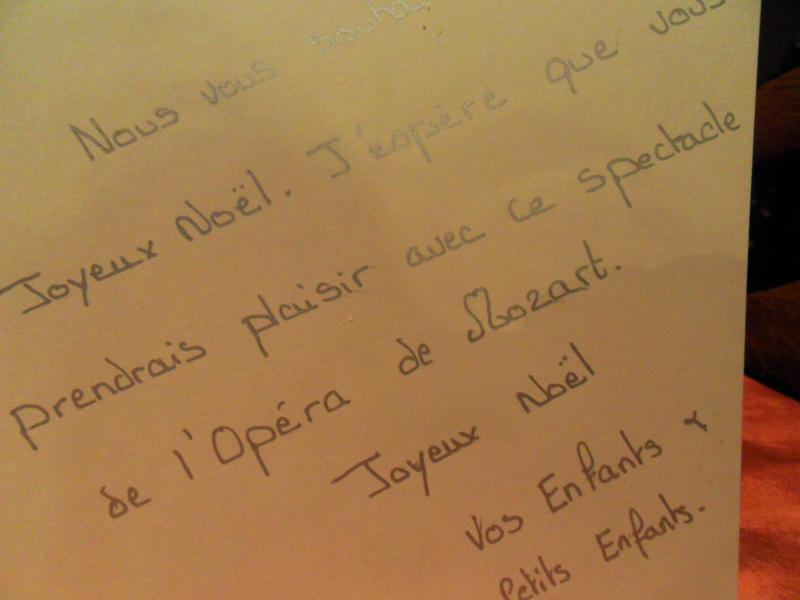 Nous vous
Joyeux Noël. J'espère que vous
prendrais plaisir avec ce spectacle
de l'Opéra de Mozart.
Joyeux Noël
Vos Enfants &
Petits Enfants.